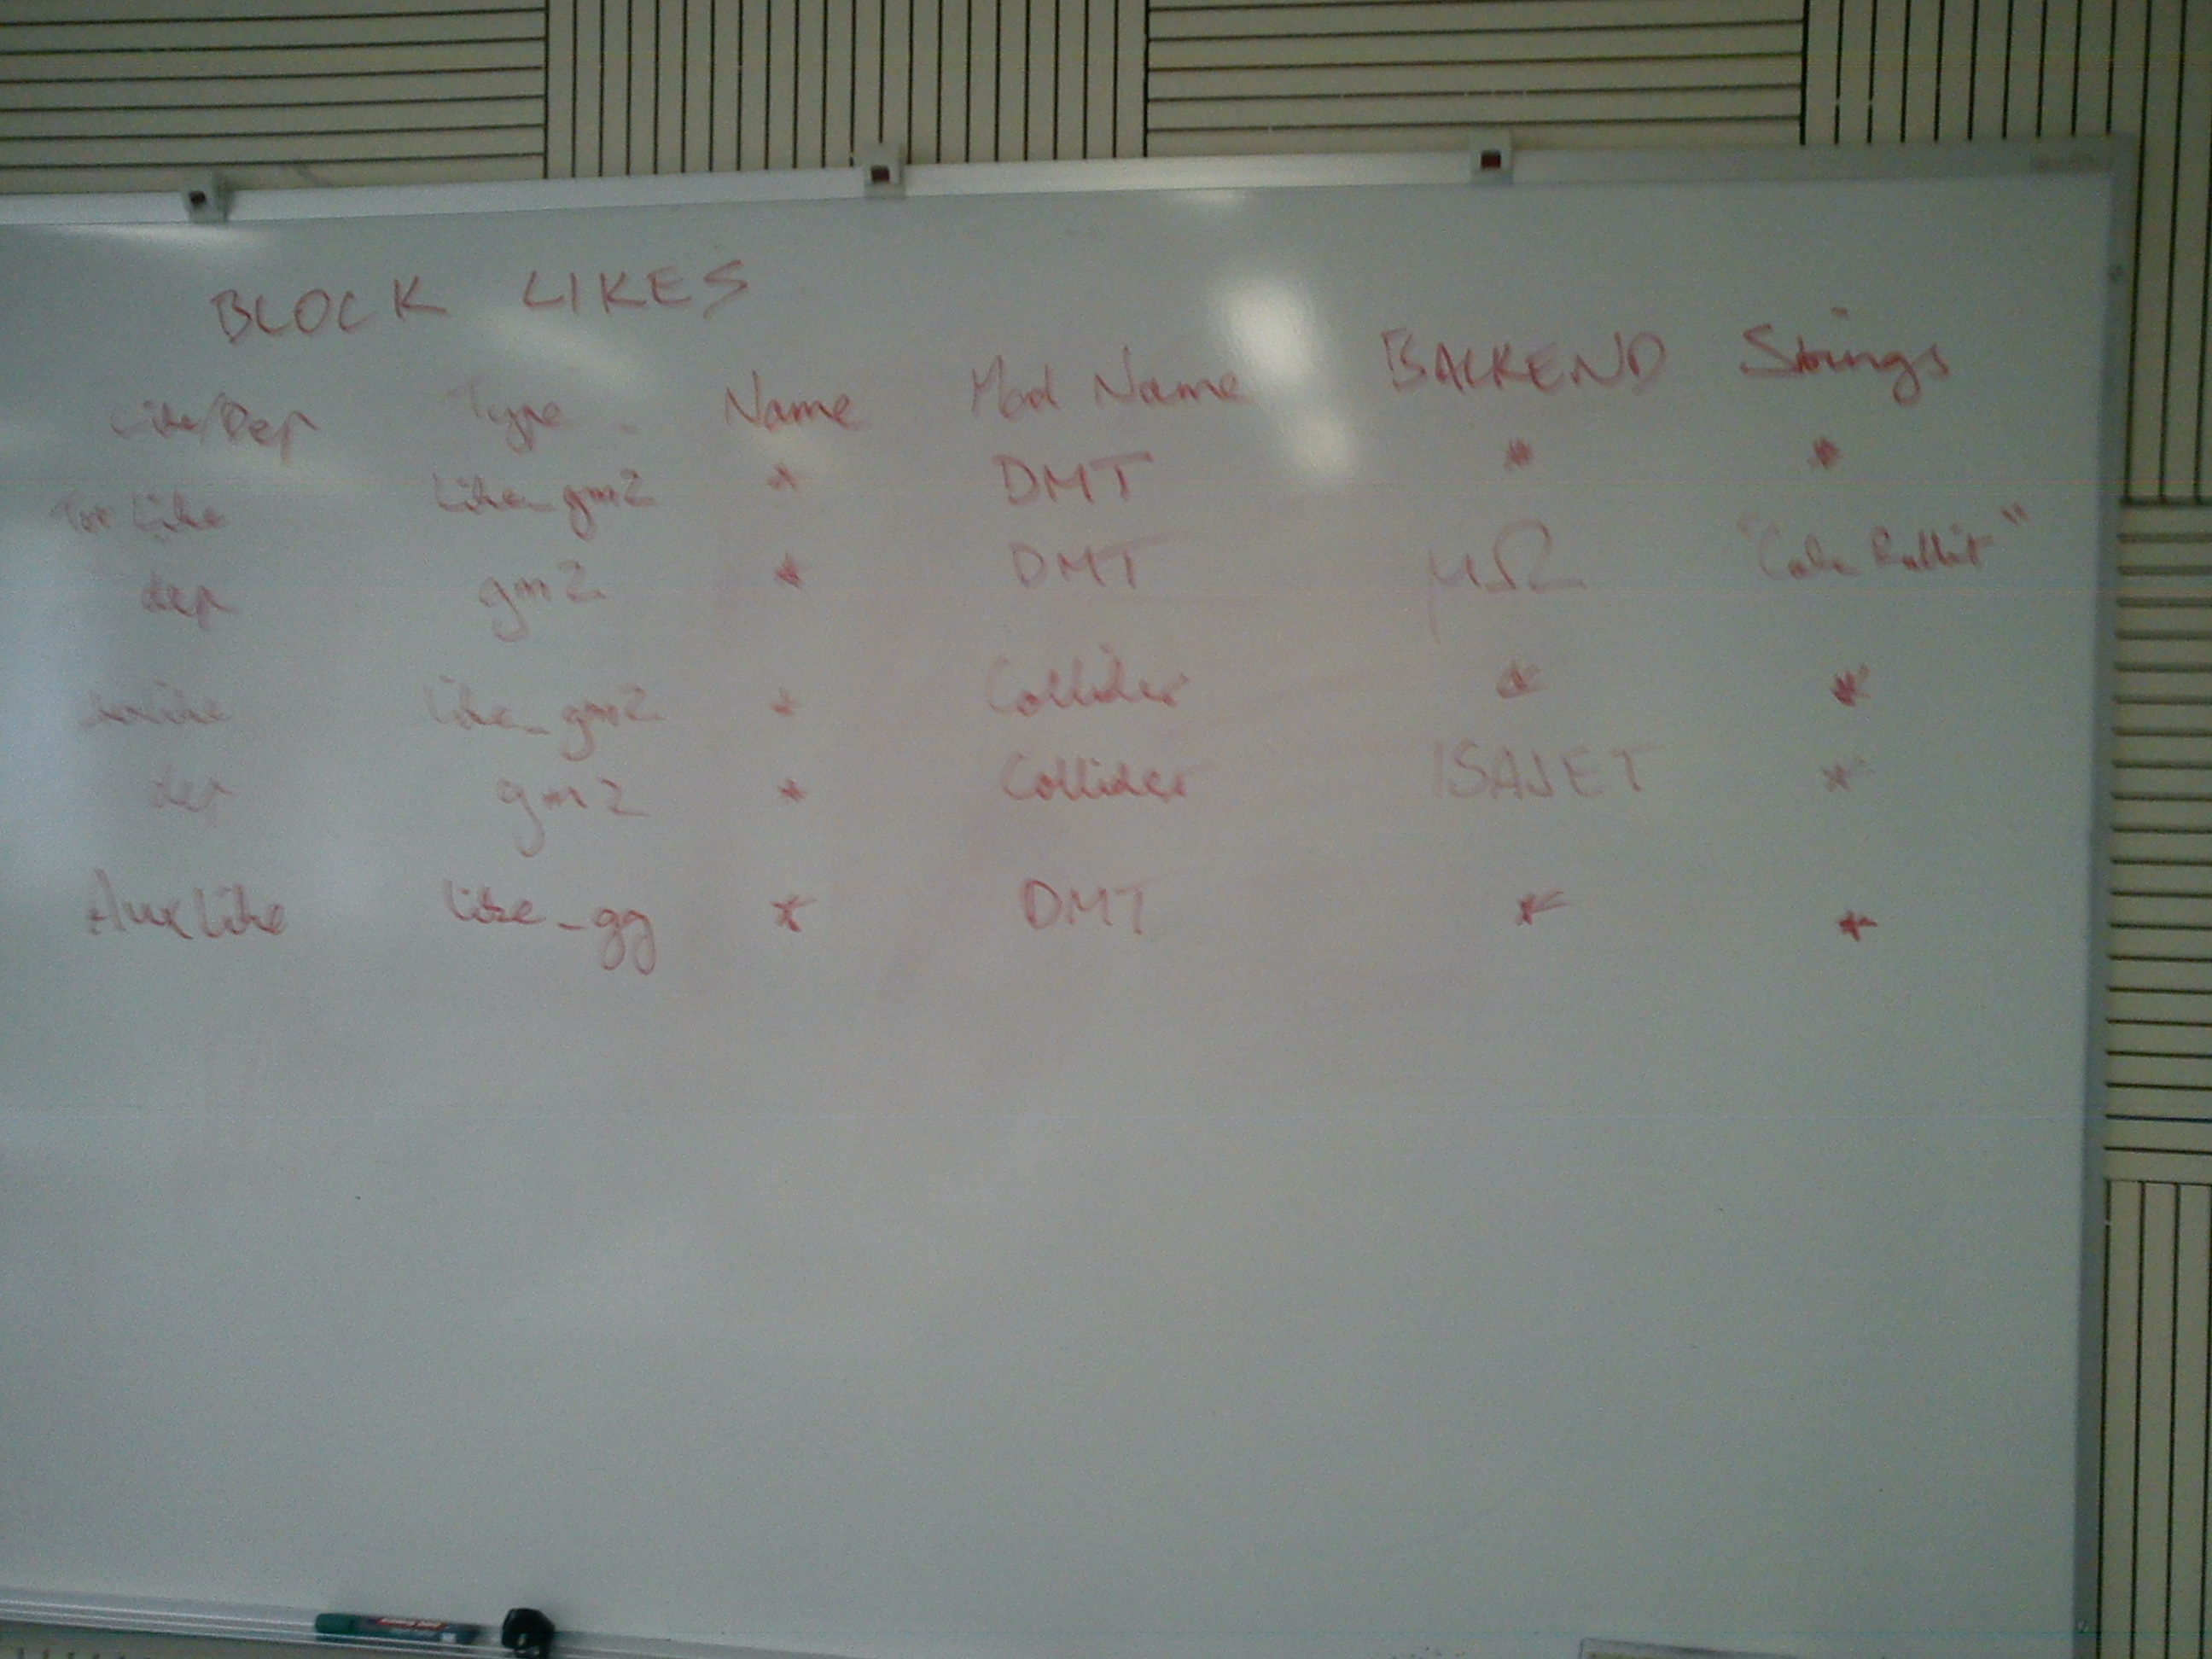 BLOCK LIKES
Like/Dep Type Name Mod Name BACKEND Strings
Tot Like Like_gm2 * DMT * *
dep gm2 * DMT μΩ "
like_gm2 * Collider * *
dep gm2 * Collider ISAJET *
Aux Like like_gg * DMT * *